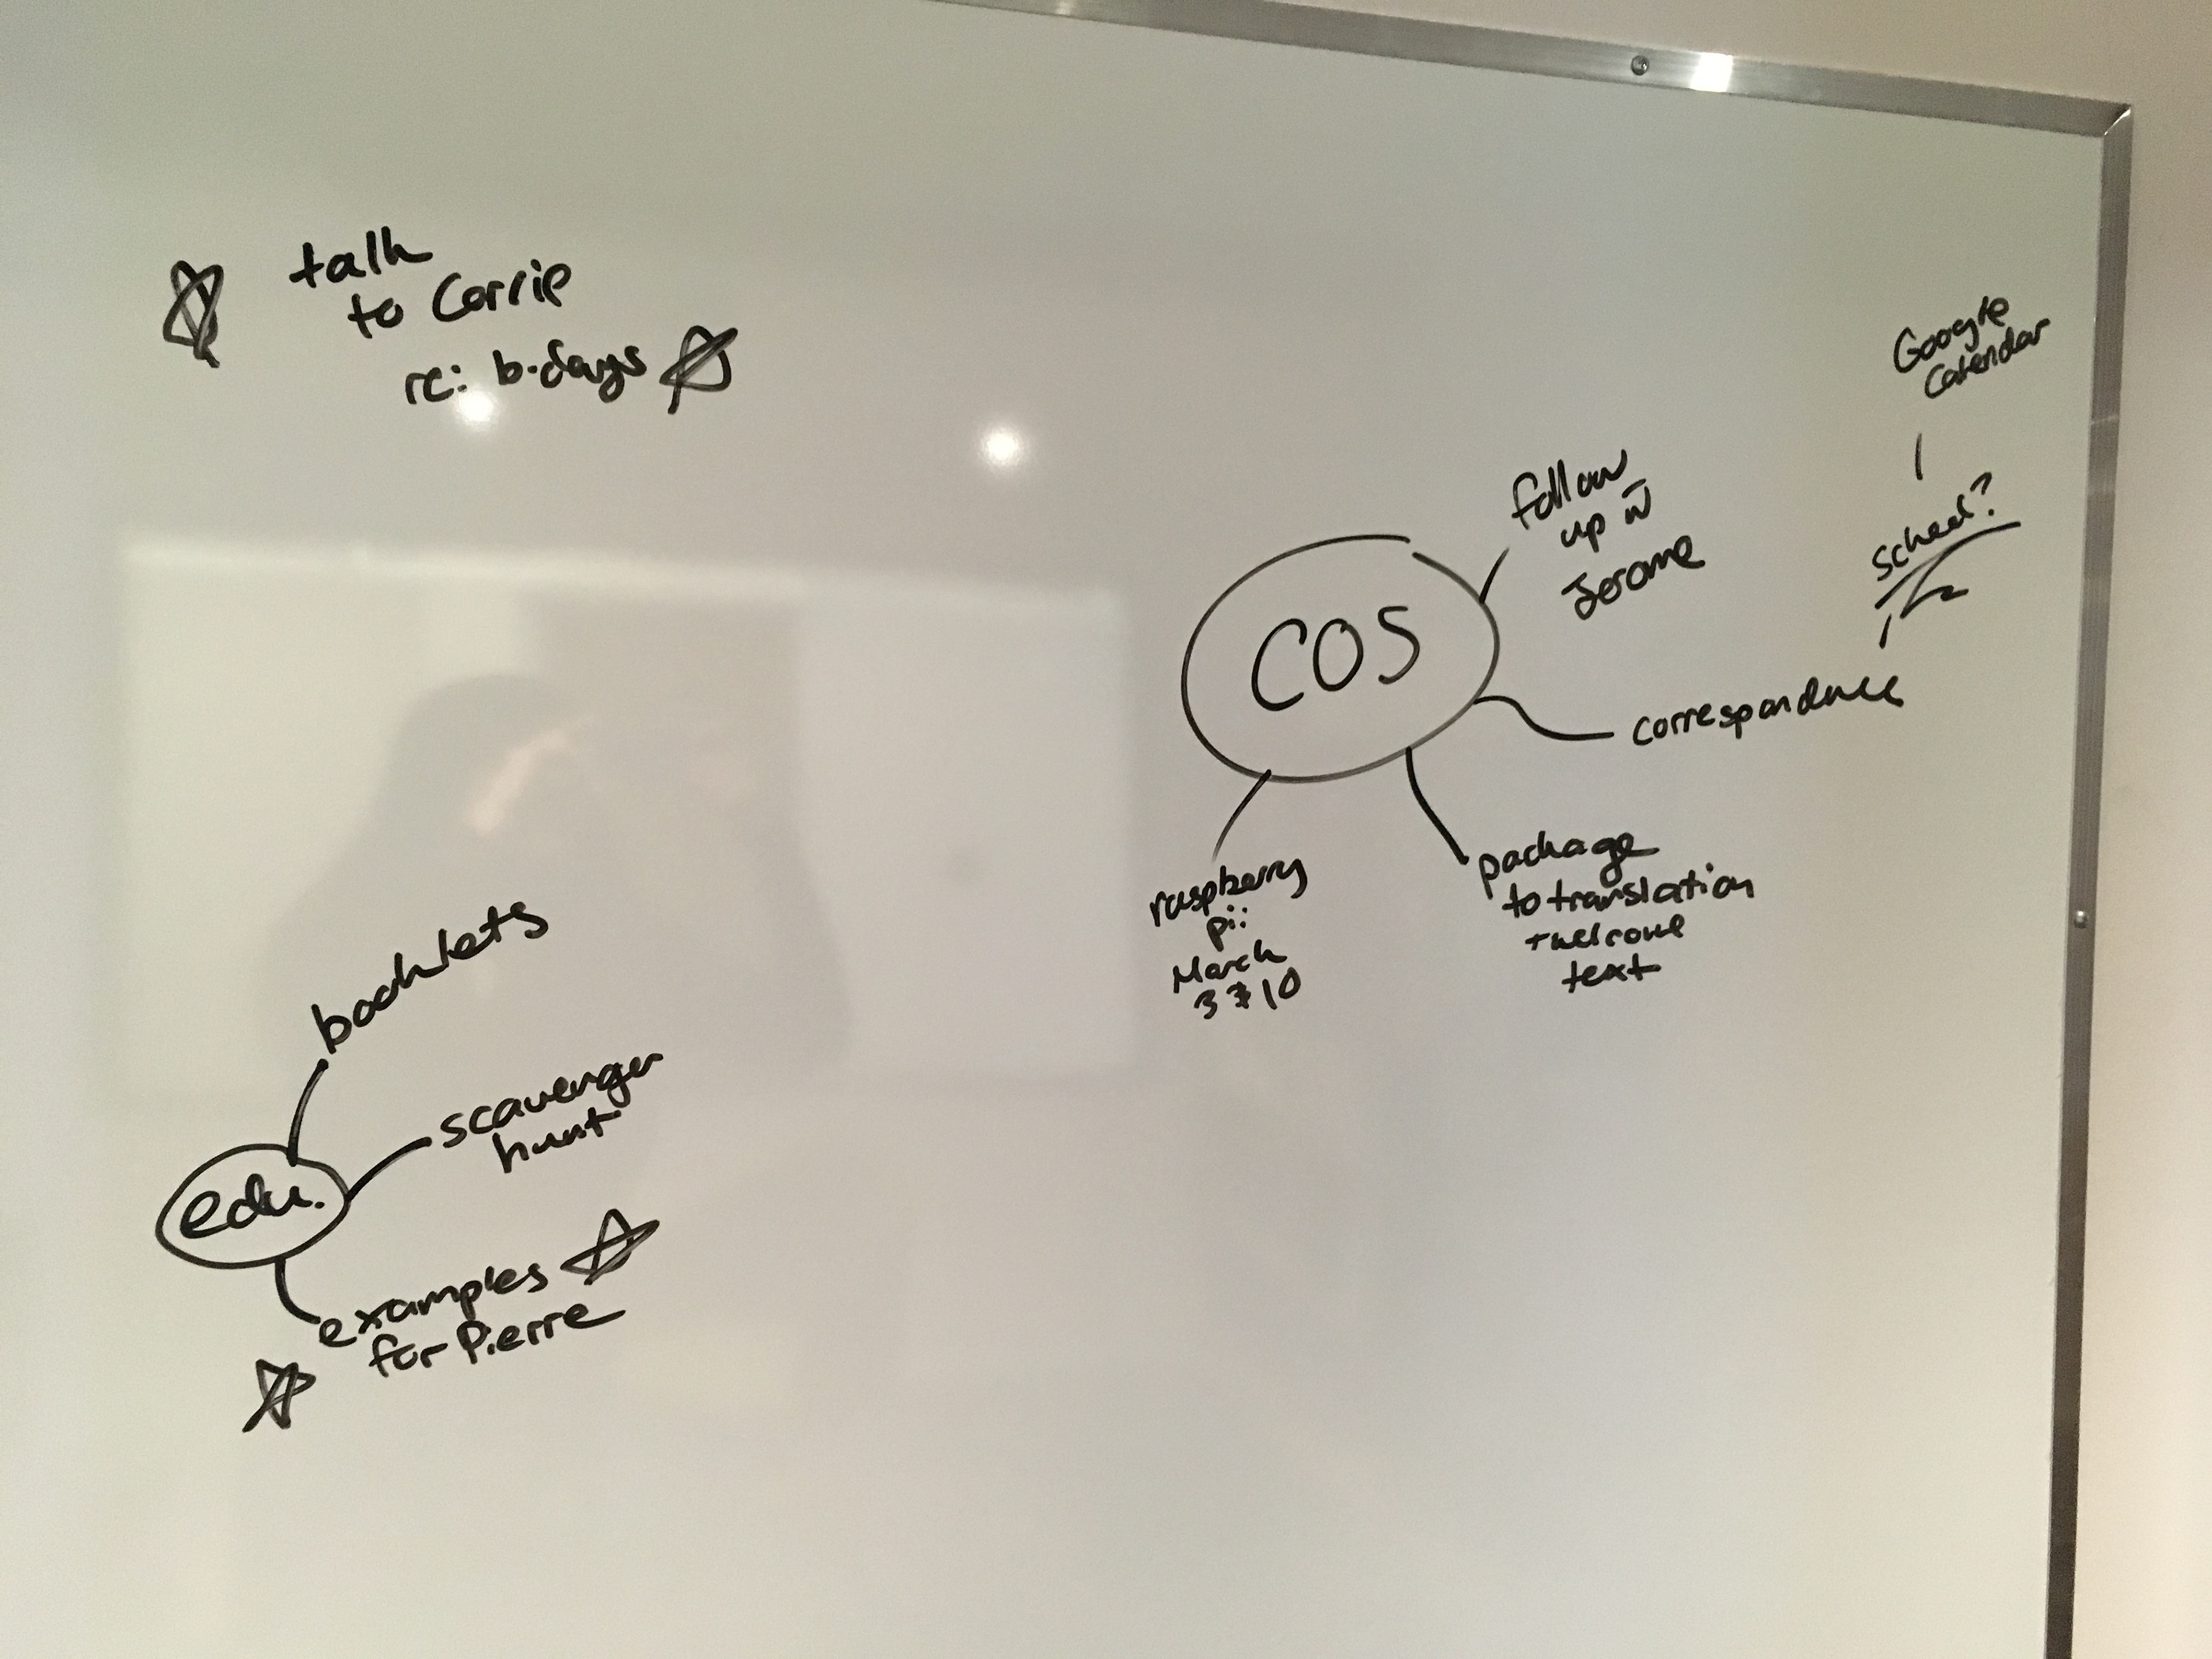 talk
to Corrie
re: b-days
Google
Calendar
sched?
follow
up w̄
Jerome
COS
correspondence
package
to translation
+ welcome
text
raspberry
pi:
March
3 & 10
booklets
scavenger
hunt
edu.
examples
for Pierre